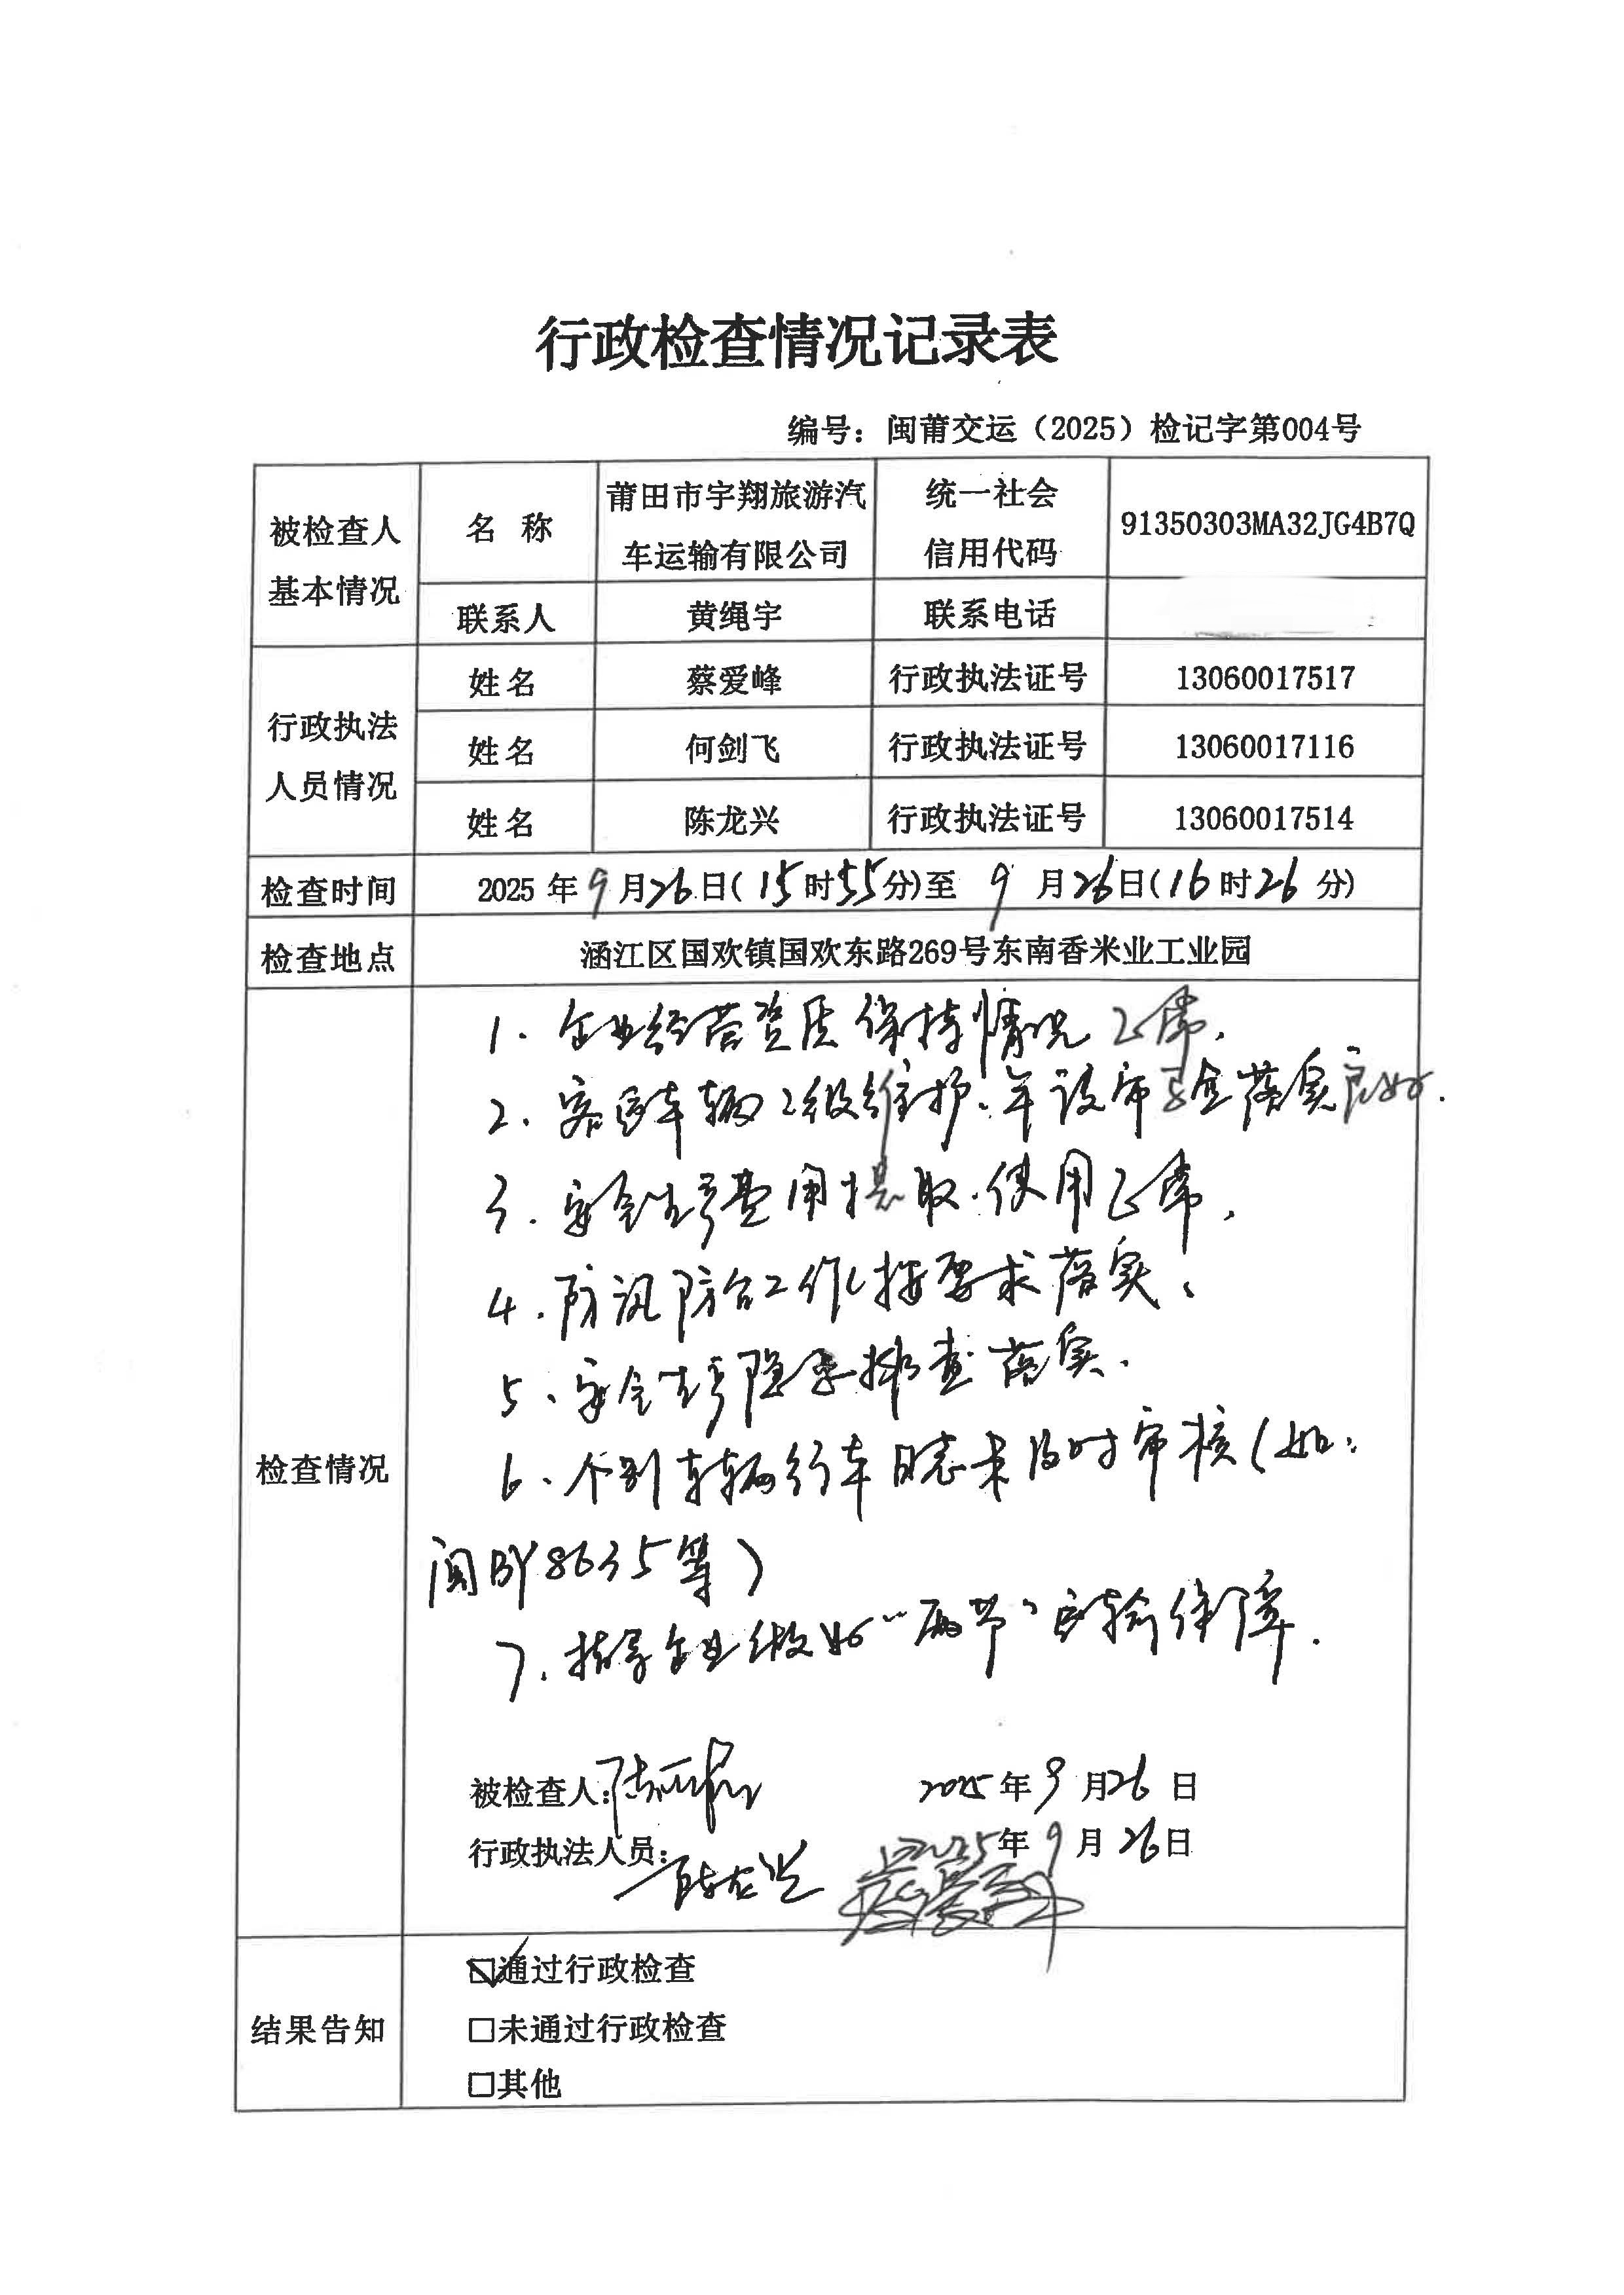 行政检查情况记录表
编号：闽莆交运（2025）检记字第004号
被检查人
基本情况
名 称
莆田市宇翔旅游汽
车运输有限公司
统一社会
信用代码
91350303MA32JG4B7Q
联系人
黄绳宇
联系电话
行政执法
人员情况
姓名
蔡爱峰
行政执法证号
13060017517
姓名
何剑飞
行政执法证号
13060017116
姓名
陈龙兴
行政执法证号
13060017514
检查时间
2025 年 9 月 26 日( 15 时 55 分)至 9 月 26 日(16 时 26 分)
检查地点
涵江区国欢镇国欢东路269号东南香米业工业园
检查情况
1. 企业经营资质保持情况正常.
2. 客运车辆2级维护、年审落实良好.
3. 安全生产费用提取.使用正常.
4. 防汛防台工作按要求落实.
5、安全生产隐患排查落实.
6、个别车辆行车日志未及时审核(如:
闽BY8635等)
7、指导企业做好“两节”运输保障.
被检查人：
2025 年 9 月 26 日
行政执法人员：
陈龙兴
蔡爱峰
2025 年 9 月 26 日
结果告知
☑通过行政检查
□未通过行政检查
□其他